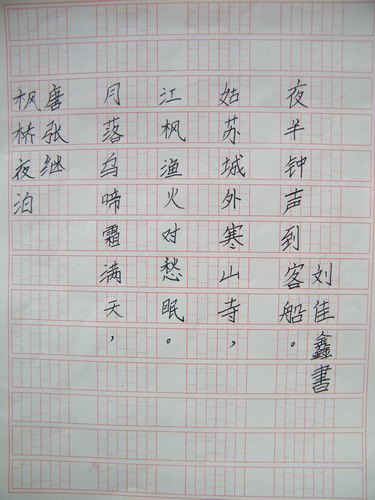 枫桥夜泊
唐张继
月落乌啼霜满天，
江枫渔火对愁眠。
姑苏城外寒山寺，
夜半钟声到客船。
刘佳鑫書